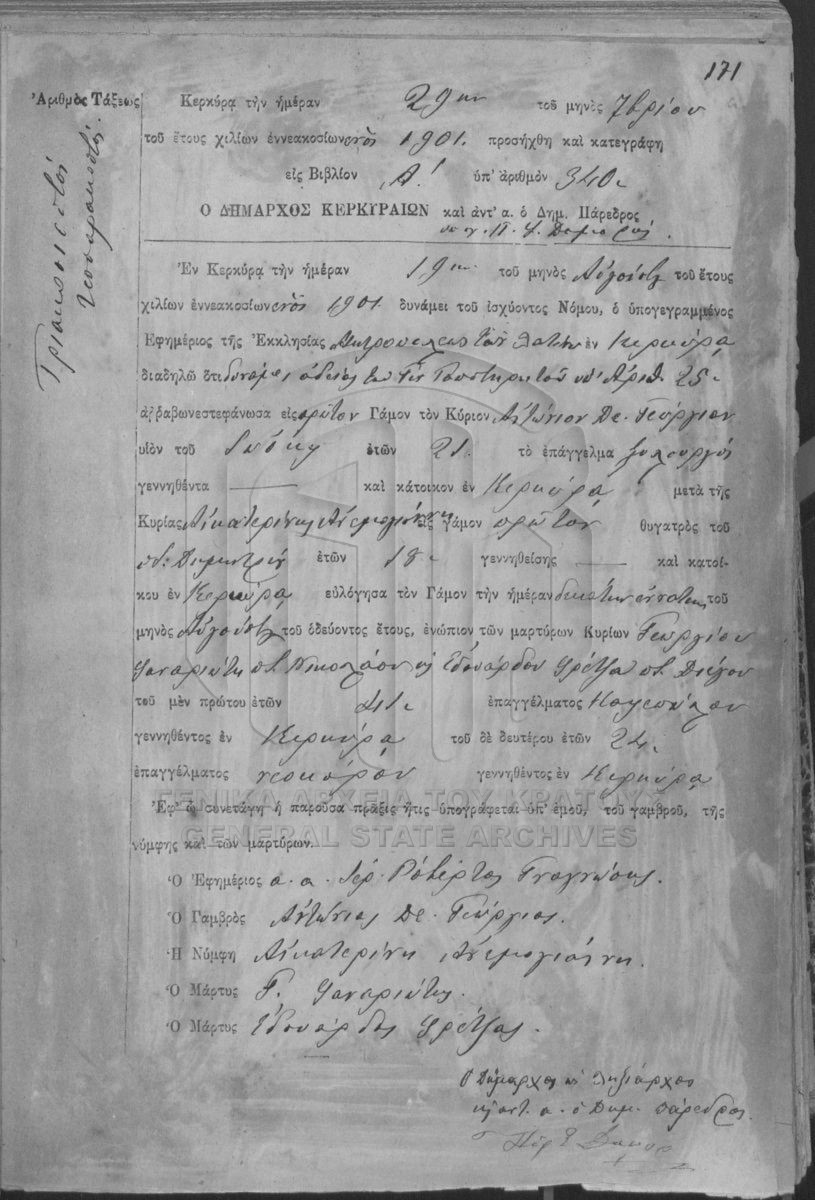 171
Ἀριθμὸς Τάξεως
Τριακοσιοστὸς
τεσσαρακοστός.
Κερκύρᾳ τὴν ἡμέραν 29ην τοῦ μηνὸς 7βρίου
τοῦ ἔτους χιλίων ἐννεακοσίων ἑνὸς 1901. προσήχθη καὶ κατεγράφη
εἰς Βιβλίον Α! ὑπ' ἀριθμὸν 340
Ο ΔΗΜΑΡΧΟΣ ΚΕΡΚΥΡΑΙΩΝ καὶ ἀντ' α. ὁ Δημ. Πάρεδρος
Ἐν Κερκύρᾳ τὴν ἡμέραν 19ην τοῦ μηνὸς Αὐγούστου τοῦ ἔτους
χιλίων ἐννεακοσίων ἑνὸς 1901. δυνάμει τοῦ ἰσχύοντος Νόμου, ὁ ὑπογεγραμμένος
Ἐφημέριος τῆς Ἐκκλησίας Μητροπόλεως τῶν Λατίν. ἐν Κερκύρᾳ
διαδηλῶ ὅτι δυνάμει ἀδείας ὑπ' Ἀριθ. 25
ἀῤῥαβωνεστεφάνωσα εἰς πρῶτον Γάμον τὸν Κύριον Ἀντώνιον De. Γεώργιον
υἱὸν τοῦ ἐτῶν 21. τὸ ἐπάγγελμα ξυλουργὸς
γεννηθέντα — καὶ κάτοικον ἐν Κερκύρᾳ μετὰ τῆς
Κυρίας Αἰκατερίνης Ἀνεμογιάννη εἰς γάμον πρῶτον θυγατρὸς τοῦ
ποτ. Δημητρίου ἐτῶν 18 γεννηθείσης — καὶ κατοί-
κου ἐν Κερκύρᾳ εὐλόγησα τὸν Γάμον τὴν ἡμέραν δεκάτην ἐννάτην τοῦ
μηνὸς Αὐγούστου τοῦ ὁδεύοντος ἔτους, ἐνώπιον τῶν μαρτύρων Κυρίων Γεωργίου
Φαναριώτη ποτ. Νικολάου κ' Ἐδουάρδου Φρέτζα ποτ.
τοῦ μὲν πρώτου ἐτῶν 41 ἐπαγγέλματος
γεννηθέντος ἐν Κερκύρᾳ τοῦ δὲ δευτέρου ἐτῶν 24
ἐπαγγέλματος νεοκόρου γεννηθέντος ἐν Κερκύρᾳ
ΓΕΝΙΚΑ ΑΡΧΕΙΑ ΤΟΥ ΚΡΑΤΟΥΣ
Ἐφ' ᾧ συνετάγη ἡ παροῦσα πρᾶξις ἥτις ὑπογράφεται ὑπ' ἐμοῦ, τοῦ γαμβροῦ, τῆς
GENERAL STATE ARCHIVES
νύμφης καὶ τῶν μαρτύρων.
Ὁ Ἐφημέριος α. α. Ἱερ. Ῥοβέρτος
Ὁ Γαμβρὸς Ἀντώνιος De. Γεώργιος.
Ἡ Νύμφη Αἰκατερίνη Ἀνεμογιάννη.
Ὁ Μάρτυς Γ. Φαναριώτης.
Ὁ Μάρτυς Ἐδουάρδος Φρέτζας.
Ὁ Δήμαρχος κ' Ληξίαρχος
κ' ἀντ. α. ὁ Δημ. πάρεδρος.